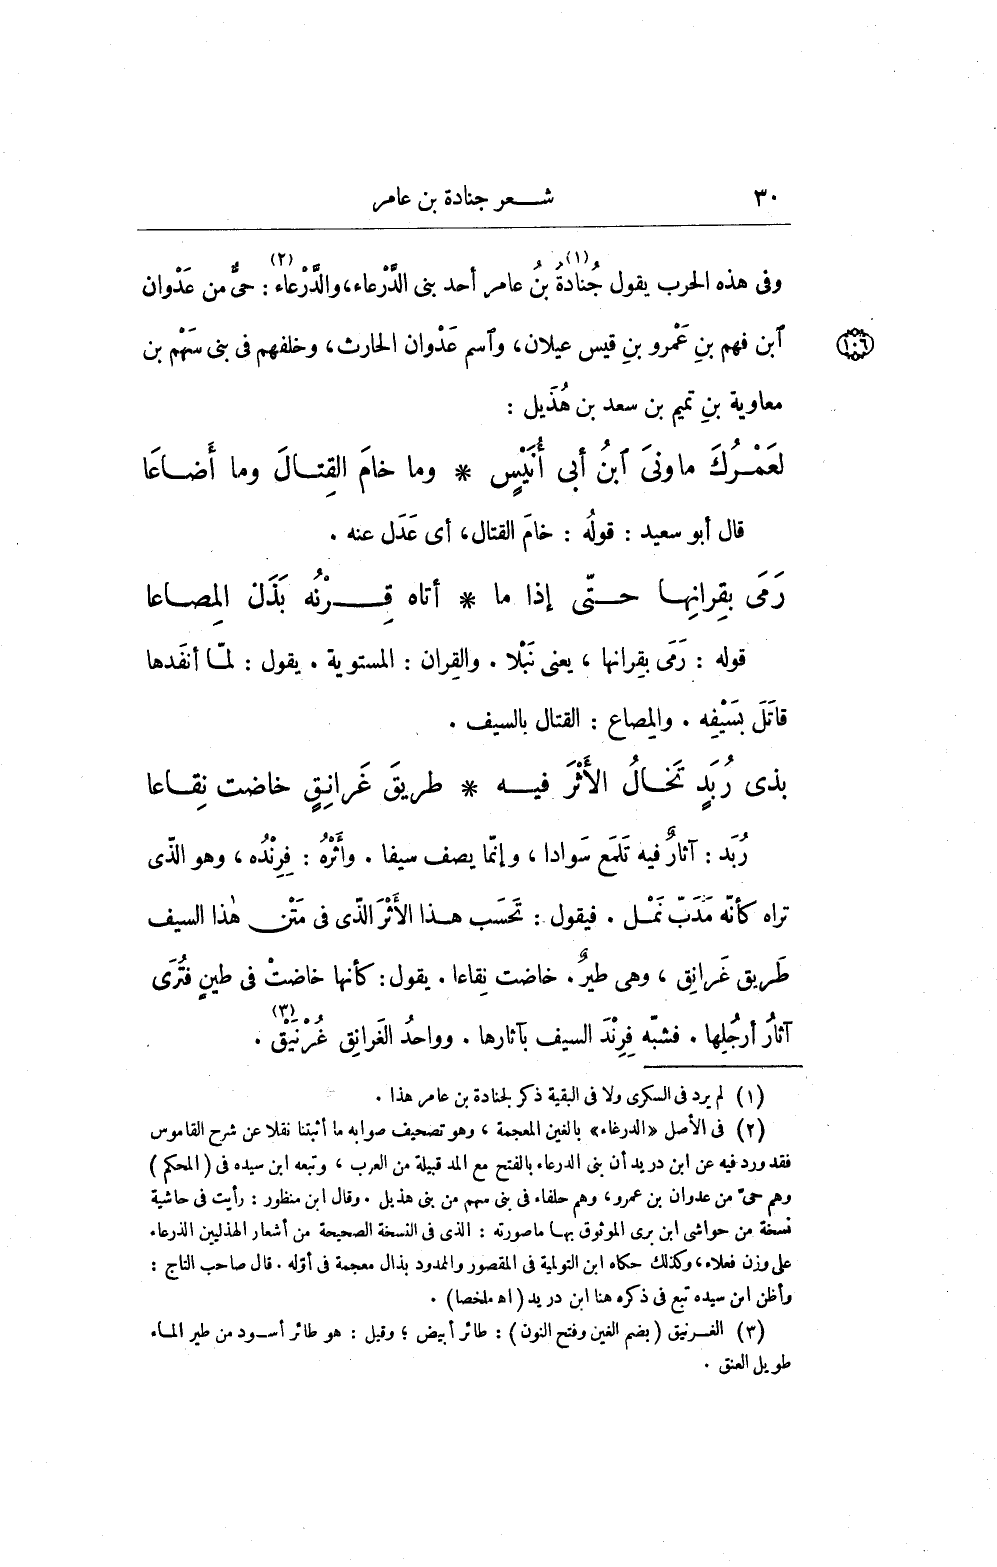 ٣٠ شعر جنادة بن عامر
وفى هذه الحرب يقول جُنادةُ (١) بنُ عامر أحد بنى الدَّرْعاء، والدَّرْعاء (٢) : حىٌّ من عَدْوان
ٱبن فهم بنِ عَمْرو بنِ قيس عيلان، وٱسم عَدْوان الحارث، وخلفهم فى بنى سَهْم بن
١٠٦
معاوية بنِ تميم بن سعد بن هُذَيل :
لعَمْرُكَ ماونىَ ٱبنُ أبى أُنَيْسٍ * وما خامَ القِتالَ وما أَضاعَا
قال أبو سعيد : قولُه : خامَ القتال، أى عَدَل عنه .
رَمَى بقِرانِها حتّى إذا ما * أتاه قِرْنُه بَذَل المِصاعا
قوله : رَمَى بقِرانها ، يعنى نَبْلا . والقِران : المستوية . يقول : لمّا أنفَدها
قاتَلَ بسَيْفِه . والمِصاع : القتال بالسيف .
بذى رُبَدٍ تَخالُ الأَثْرَ فيه * طريقَ غَرانِقٍ خاضت نِقاعا
رُبَد : آثارٌ فيه تَلمَع سَوادا ، وإنّما يصف سيفا . وأَثْرُه : فِرِنْدُه ، وهو الّذى
تراه كأنّه مَدَبّ نَمْل . فيقول : تَحسَب هذا الأَثْرَ الّذى فى مَتْن هٰذا السيف
طَريق غَرانق ، وهى طيرٌ . خاضت نِقاعا . يقول : كأنها خاضتْ فى طينٍ فتُرَى
آثارُ أرجُلِها . فشبّه فِرِنْدَ السيف بآثارها . وواحدُ الغَرانِق غُرْنَيْق (٣) .
(١) لم يرد فى السكرى ولا فى البقية ذكر لجنادة بن عامر هذا .
(٢) فى الأصل «الدرغاء» بالغين المعجمة ، وهو تصحيف صوابه ما أثبتنا نقلا عن شرح القاموس
فقد ورد فيه عن ابن دريد أن بنى الدرعاء بالفتح مع المد قبيلة من العرب ، وتبعه ابن سيده فى (المحكم)
وهم حىّ من عدوان بن عمرو، وهم حلفاء فى بنى سهم من بنى هذيل . وقال ابن منظور : رأيت فى حاشية
نسخة من حواشى ابن برى الموثوق بها ماصورته : الذى فى النسخة الصحيحة من أشعار الهذليين الذرعاء
على وزن فعلاء، وكذلك حكاه ابن التولمية فى المقصور والممدود بذال معجمة فى أوّله . قال صاحب التاج :
وأظن ابن سيده تبع فى ذكره هنا ابن دريد (اه ملخصا) .
(٣) الغرنيق (بضم الغين وفتح النون) : طائر أبيض ؛ وقيل : هو طائر أسود من طير الماء
طويل العنق .